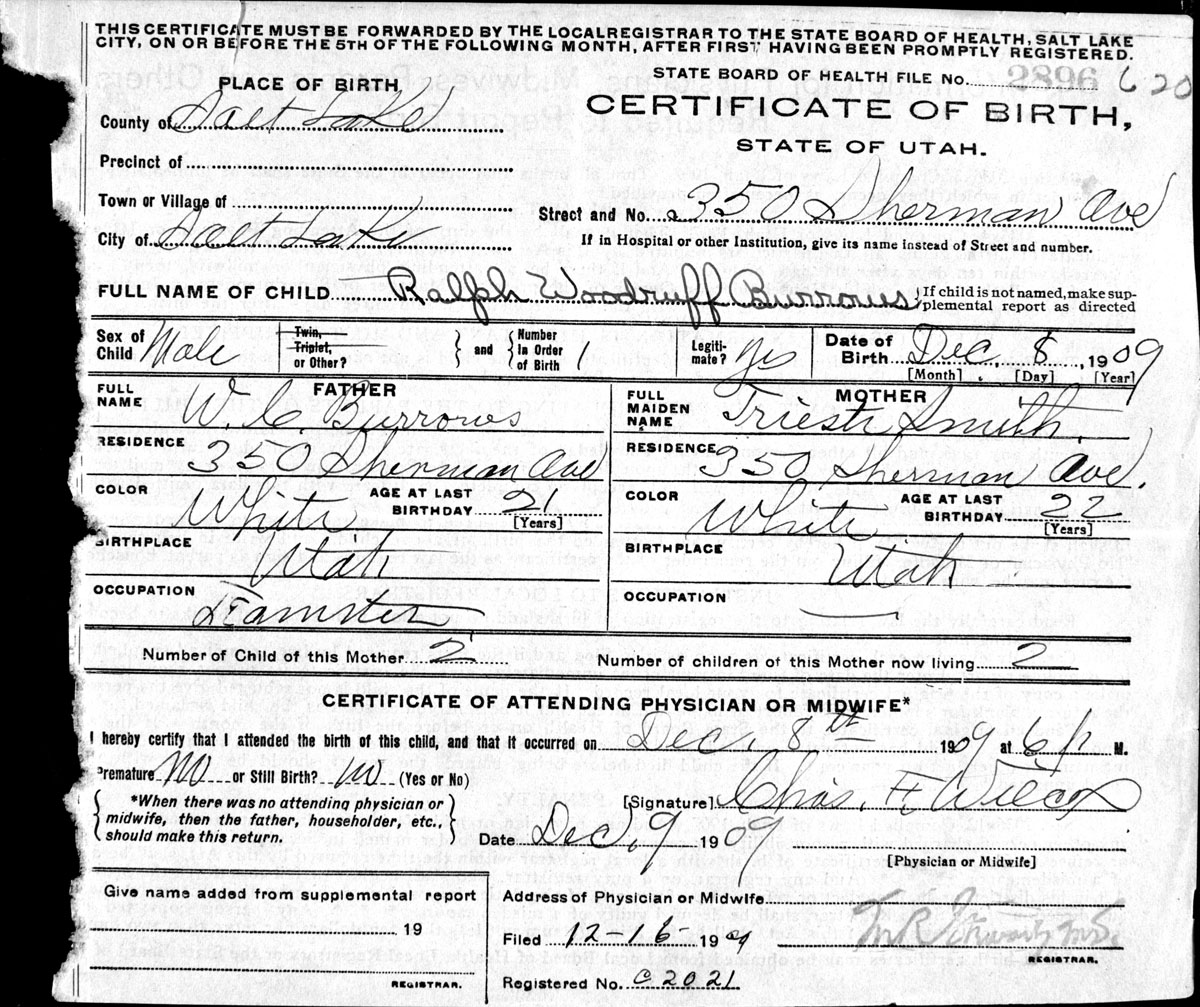 THIS CERTIFICATE MUST BE FORWARDED BY THE LOCAL REGISTRAR TO THE STATE BOARD OF HEALTH, SALT LAKE
CITY, ON OR BEFORE THE 5TH OF THE FOLLOWING MONTH, AFTER FIRST HAVING BEEN PROMPTLY REGISTERED.
STATE BOARD OF HEALTH FILE No. 2896 620
PLACE OF BIRTH
CERTIFICATE OF BIRTH,
STATE OF UTAH.
County of Salt Lake
Precinct of
Town or Village of
Street and No. 350 Sherman Ave
City of Salt Lake
If in Hospital or other Institution, give its name instead of Street and number.
FULL NAME OF CHILD Ralph Woodruff Burrows
If child is not named, make sup-
plemental report as directed
Sex of Child Male
Twin, Triplet, or Other?
and
Number in Order of Birth 1
Legiti-mate? Yes
Date of Birth Dec. 8, 1909
[Month] [Day] [Year]
FATHER
FULL NAME W. C. Burrows
RESIDENCE 350 Sherman Ave
COLOR White
AGE AT LAST BIRTHDAY 21
[Years]
BIRTHPLACE Utah
OCCUPATION Teamster
MOTHER
FULL MAIDEN NAME Smith
RESIDENCE 350 Sherman Ave.
COLOR White
AGE AT LAST BIRTHDAY 22
[Years]
BIRTHPLACE Utah
OCCUPATION
Number of Child of this Mother 2
Number of children of this Mother now living 2
CERTIFICATE OF ATTENDING PHYSICIAN OR MIDWIFE*
I hereby certify that I attended the birth of this child, and that it occurred on Dec. 8th 1909 at 6 P M.
Premature No or Still Birth? No (Yes or No)
*When there was no attending physician or
midwife, then the father, householder, etc.,
should make this return.
[Signature] Chas. F. Wilcox
Date Dec, 9 1909
[Physician or Midwife]
Give name added from supplemental report
19
REGISTRAR.
Address of Physician or Midwife
Filed 12-16- 1909
REGISTRAR.
Registered No. C2021